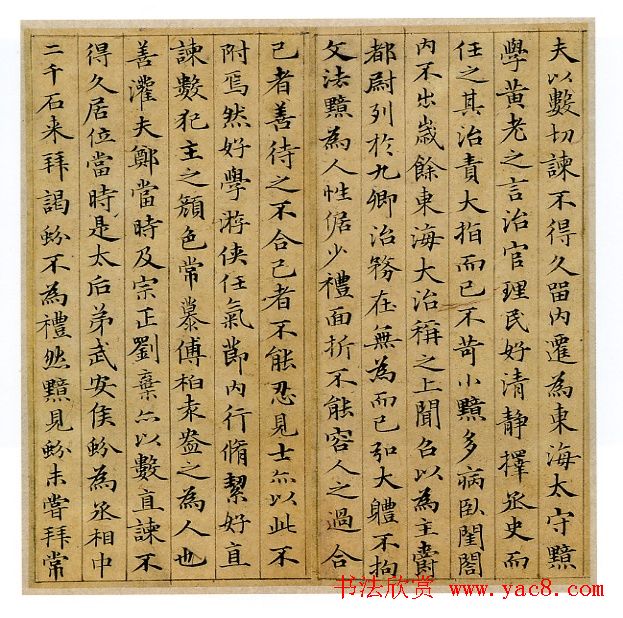 夫以數切諫不得久留內遷為東海太守黯
學黃老之言治官理民好清靜擇丞史而
任之其治責大指而已不苛小黯多病臥閨閤
內不出歲餘東海大治稱之上聞召以為主爵
都尉列於九卿治務在無為而已弘大體不拘
文法黯為人性倨少禮面折不能容人之過合
己者善待之不合己者不能忍見士亦以此不
附焉然好學游俠任氣節內行脩絜好直
諫數犯主之顏色常慕傅柏袁盎之為人也
善灌夫鄭當時及宗正劉棄亦以數直諫不
得久居位當時是太后弟武安侯蚡為丞相中
二千石来拜謁蚡不為禮然黯見蚡未嘗拜常
书法欣赏 www.yac8.com